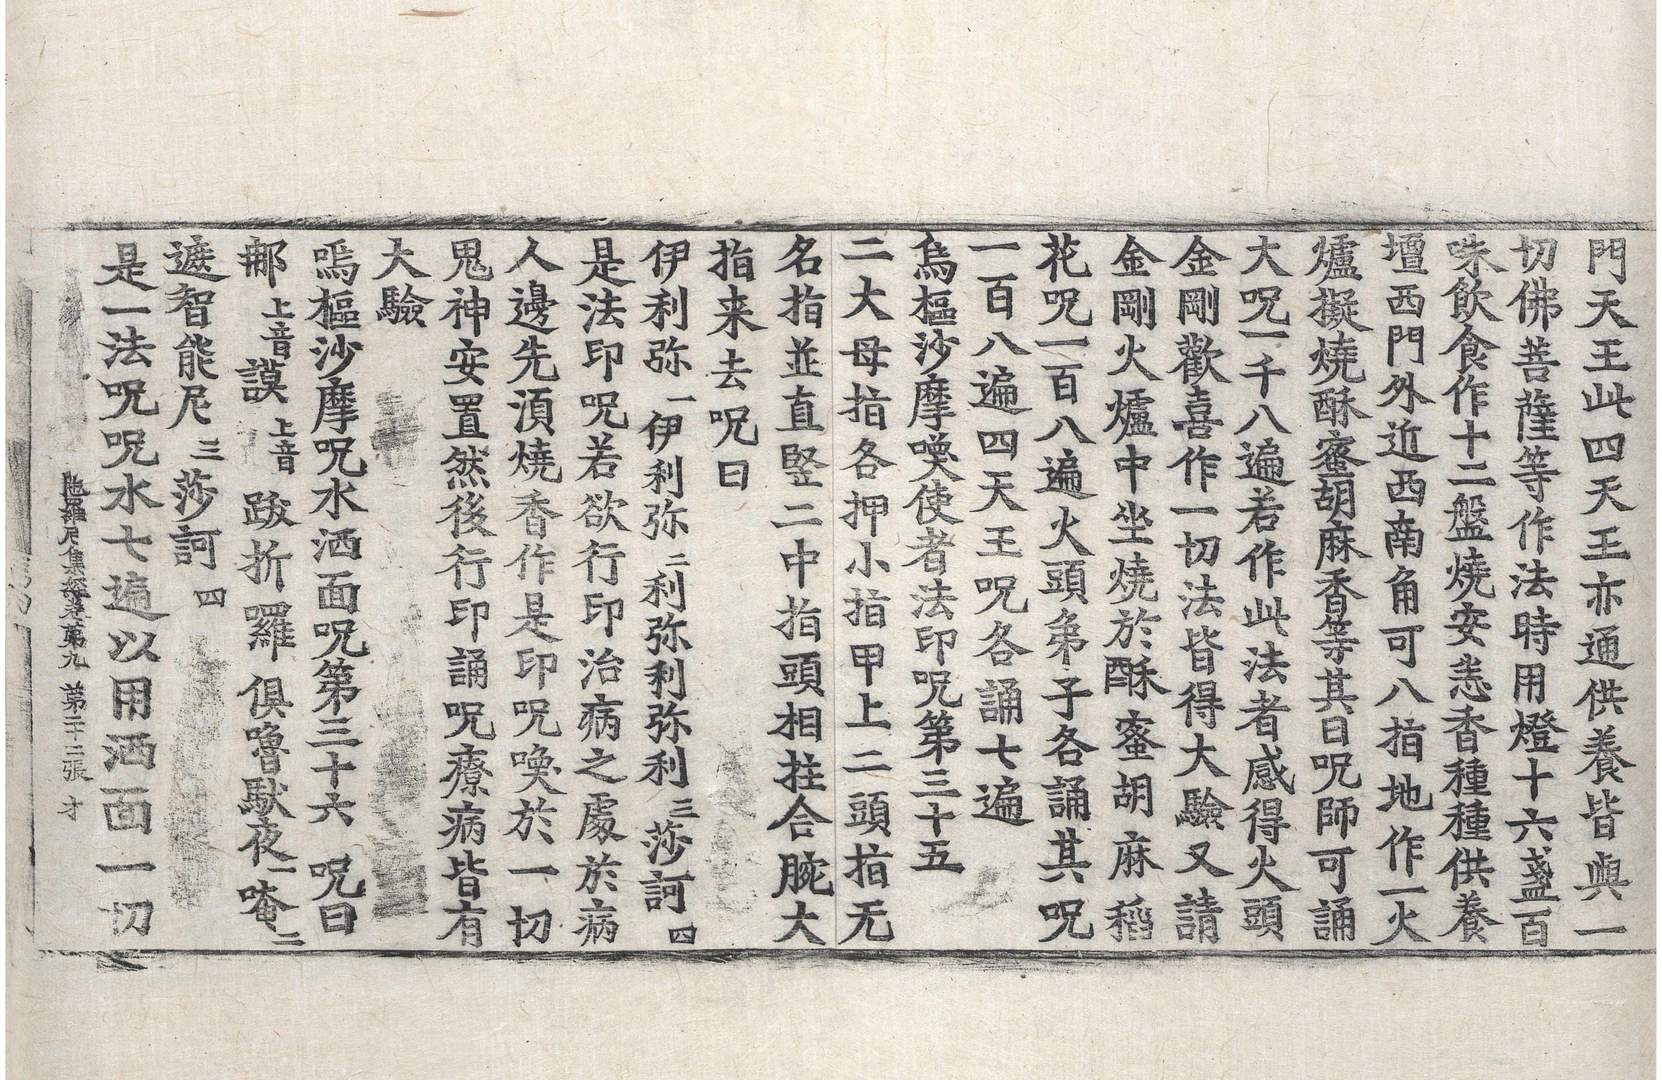 門天王此四天王亦通供養皆與一
切佛菩薩等作法時用燈十六盞百
味飲食作十二盤燒安悉香種種供養
壇西門外近西南角可八指地作一火
爐擬燒酥蜜胡麻香等其日呪師可誦
大呪一千八遍若作此法者感得火頭
金剛歡喜作一切法皆得大驗又請
金剛火爐中坐燒於酥蜜胡麻稻
花呪一百八遍火頭弟子各誦其呪
一百八遍四天王呪各誦七遍
烏樞沙摩喚使者法印呪第三十五
二大母指各押小指甲上二頭指无
名指並直竪二中指頭相拄合腕大
指来去呪曰
伊利弥一伊利弥二利弥利弥利三莎訶四
是法印呪若欲行印治病之處於病
人邊先湏燒香作是印呪喚於一切
鬼神安置然後行印誦呪療病皆有
大驗
嗚樞沙摩呪水洒面呪第三十六 呪曰
那上音謨上音跋折囉俱嚕馱夜一唵二
遮智能尼三莎訶四
是一法呪呪水七遍以用洒面一切
陁羅尼集經卷第九 第二十二張 才